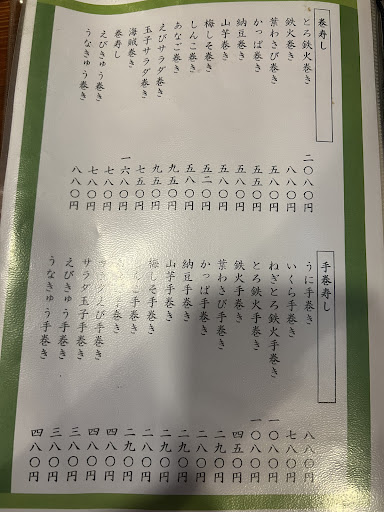 巻寿し
とろ鉄火巻き 二〇八〇円
鉄火巻き 八八〇円
葉わさび巻き 五八〇円
かっぱ巻き 五五〇円
納豆巻き 五八〇円
山芋巻き 五八〇円
梅しそ巻き 五二〇円
しんこ巻き 五八〇円
あなご巻き 九五〇円
えびサラダ巻き 九五〇円
玉子サラダ巻き 七五〇円
海鮮巻き 一六八〇円
巻寿し 七八〇円
えびきゅう巻き 七八〇円
うなきゅう巻き 八八〇円
手巻寿し
うに手巻き 八八〇円
いくら手巻き 七八〇円
ねぎとろ鉄火手巻き 一〇八〇円
とろ鉄火手巻き 一〇八〇円
鉄火手巻き 四五〇円
葉わさび手巻き 二九〇円
かっぱ手巻き 二八〇円
納豆手巻き 二九〇円
山芋手巻き 二九〇円
梅しそ手巻き 二八〇円
手巻き 二九〇円
手巻き 四八〇円
えび手巻き 四八〇円
サラダ玉子手巻き 三八〇円
えびきゅう手巻き 三八〇円
うなきゅう手巻き 四八〇円